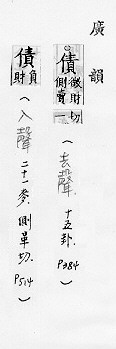 廣韻
○債徵財側賣切一（去聲．十五卦．P384）
債負財（入聲二十一麥．側革切．P514）